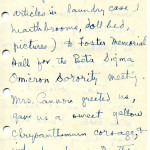 articles in laundry case,
hearthbrooms, doll bed,
pictures) to Foster Memorial
Hall for the Beta Sigma
Omicron Sorority meet;
Mrs. Cannon greeted us,
gave us a sweet yellow
chrysanthemum corsage, &